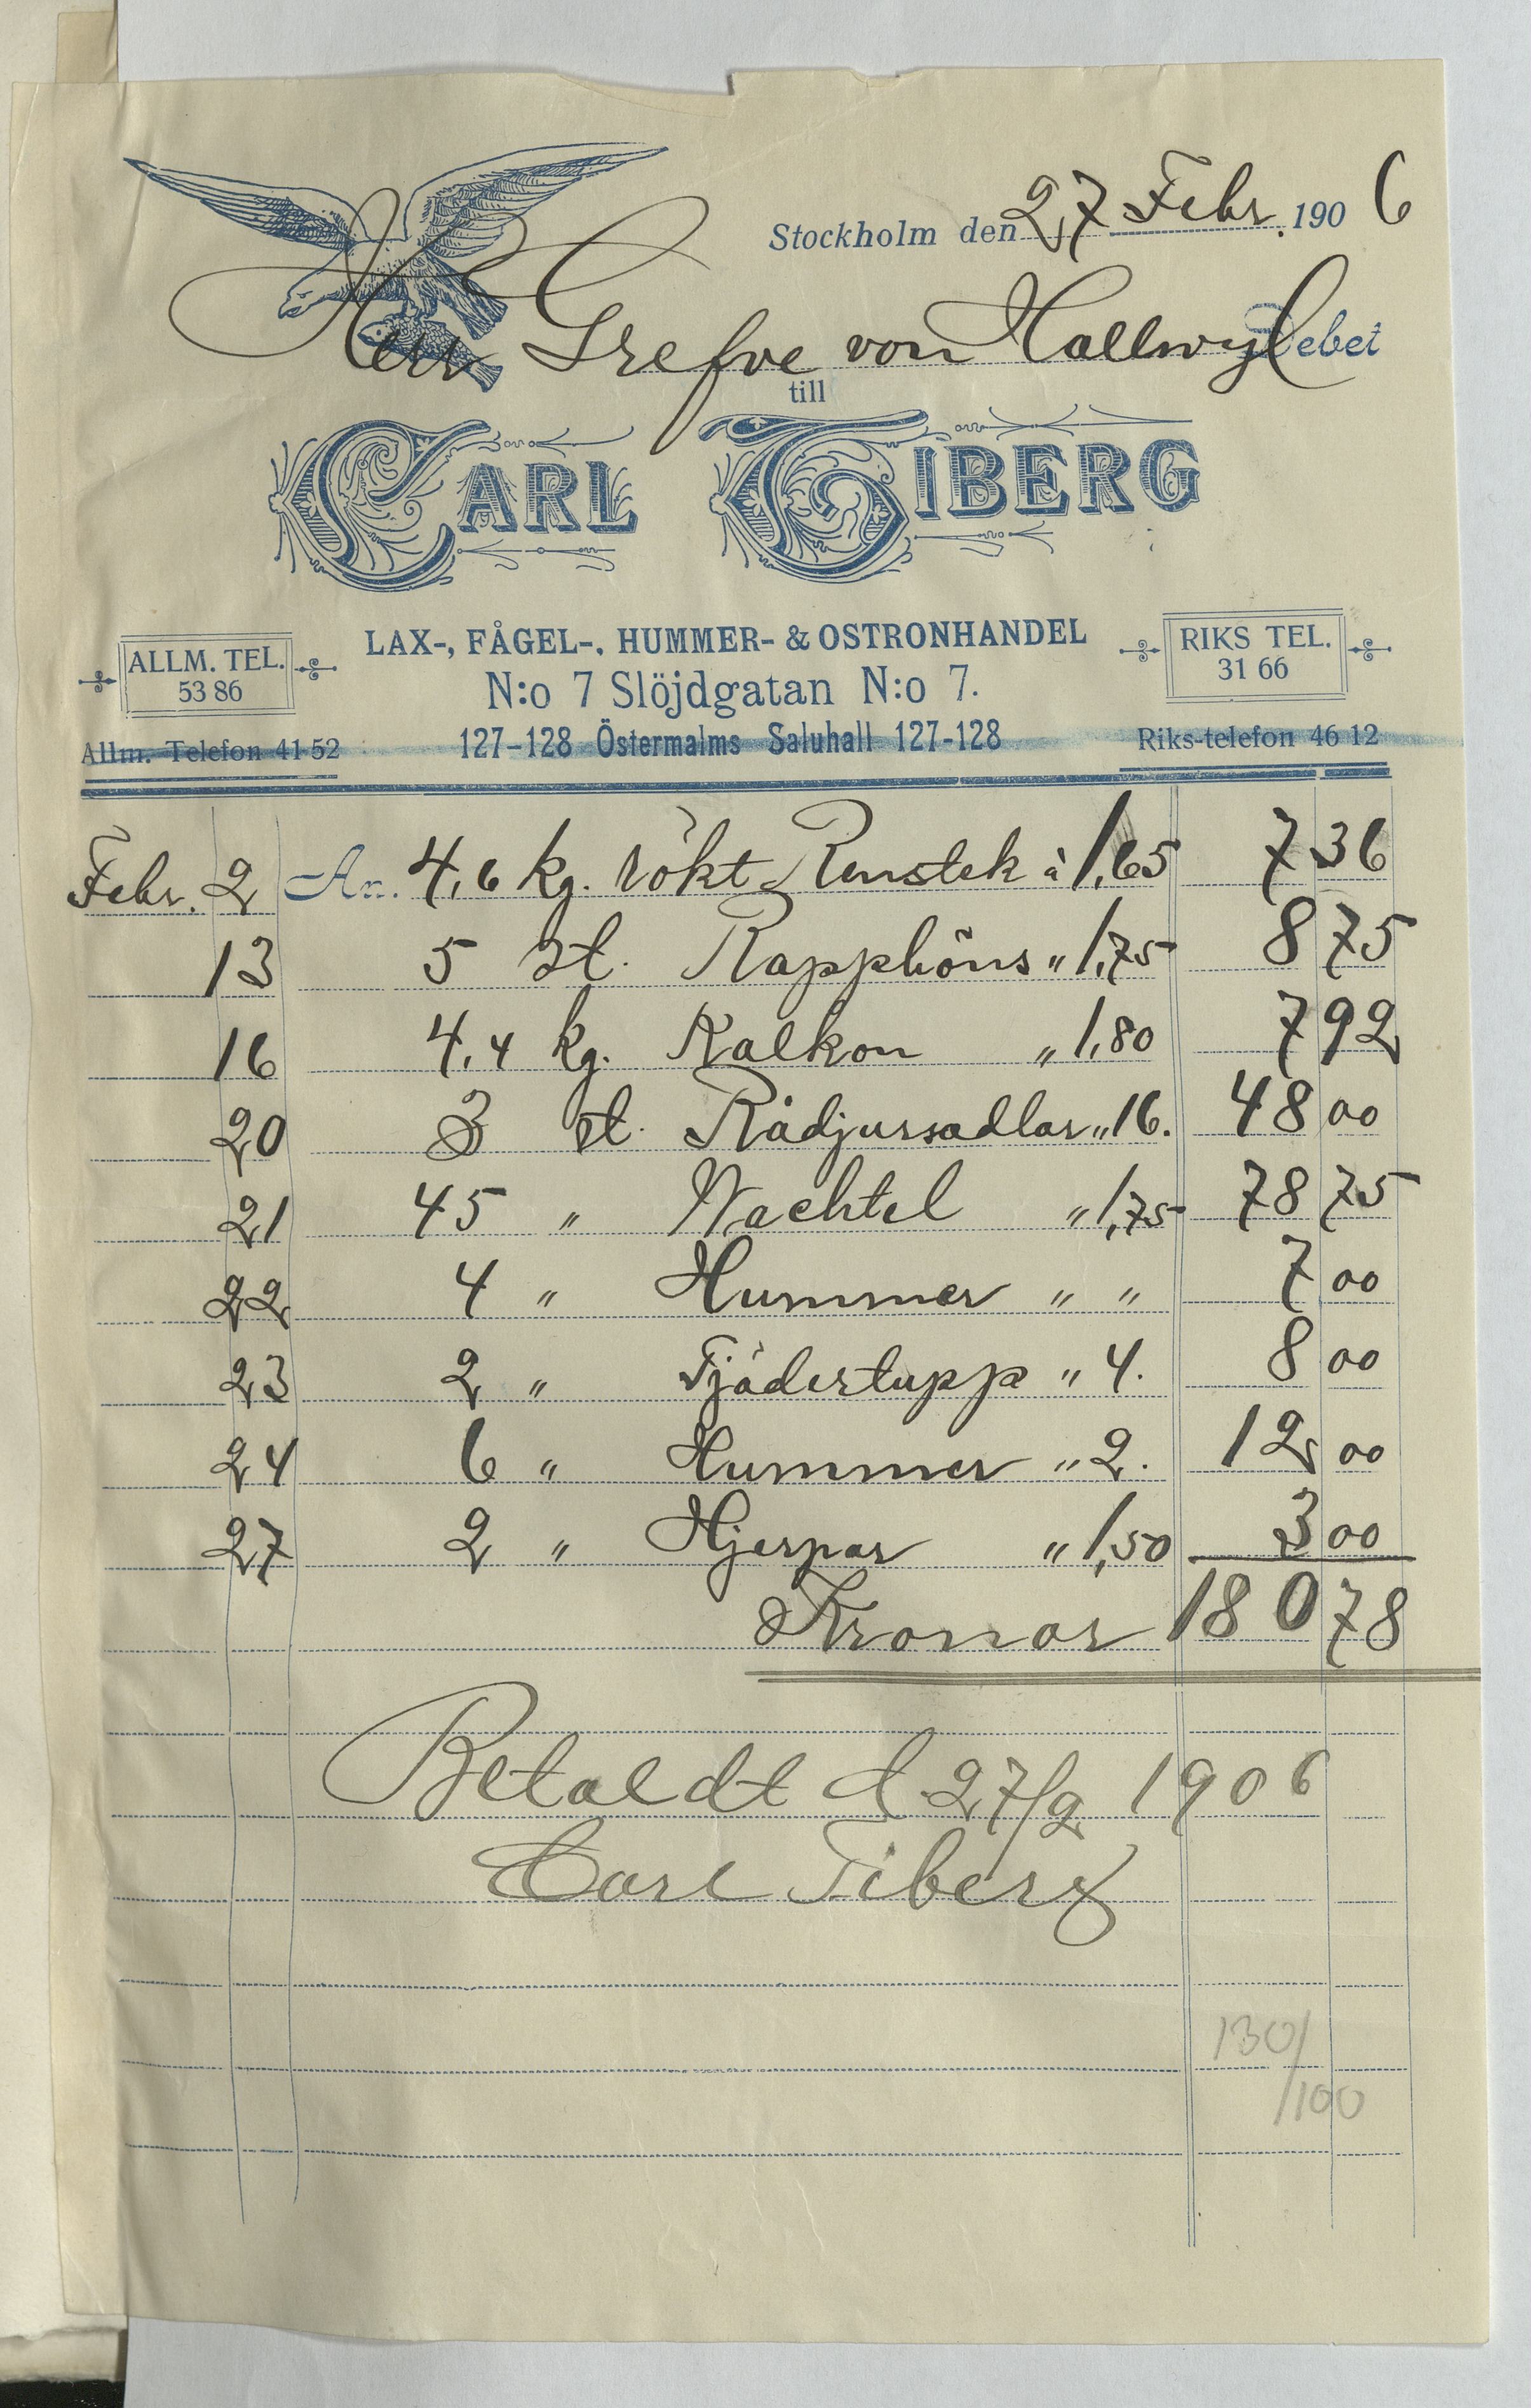 Stockholm den 27 Febr. 1906
Herr Grefve von Hallwyl Debet
till
CARL TIBERG
LAX-, FÅGEL-, HUMMER- & OSTRONHANDEL
ALLM. TEL. 53 86
N:o 7 Slöjdgatan N:o 7.
RIKS TEL. 31 66
Allm. Telefon 41 52 127-128 Östermalms Saluhall 127-128 Riks-telefon 46 12
Febr. 2 An. 4,6 kg. rökt Renstek à 1,65 7 36
13 5 st. Rapphöns " 1,75 8 75
16 4,4 kg. Kalkon " 1,80 7 92
20 3 st. Rådjurssadlar " 16. 48 00
21 45 " Wachtel " 1,75 78 75
22 4 " Hummer " " 7 00
23 2 " Tjädertupp " 4. 8 00
24 6 " Hummer " 2. 12 00
27 2 " Hjerpar " 1,50 3 00
Kronor 180 78
Betaldt d 27/2 1906
Carl Tiberg
130/
/100